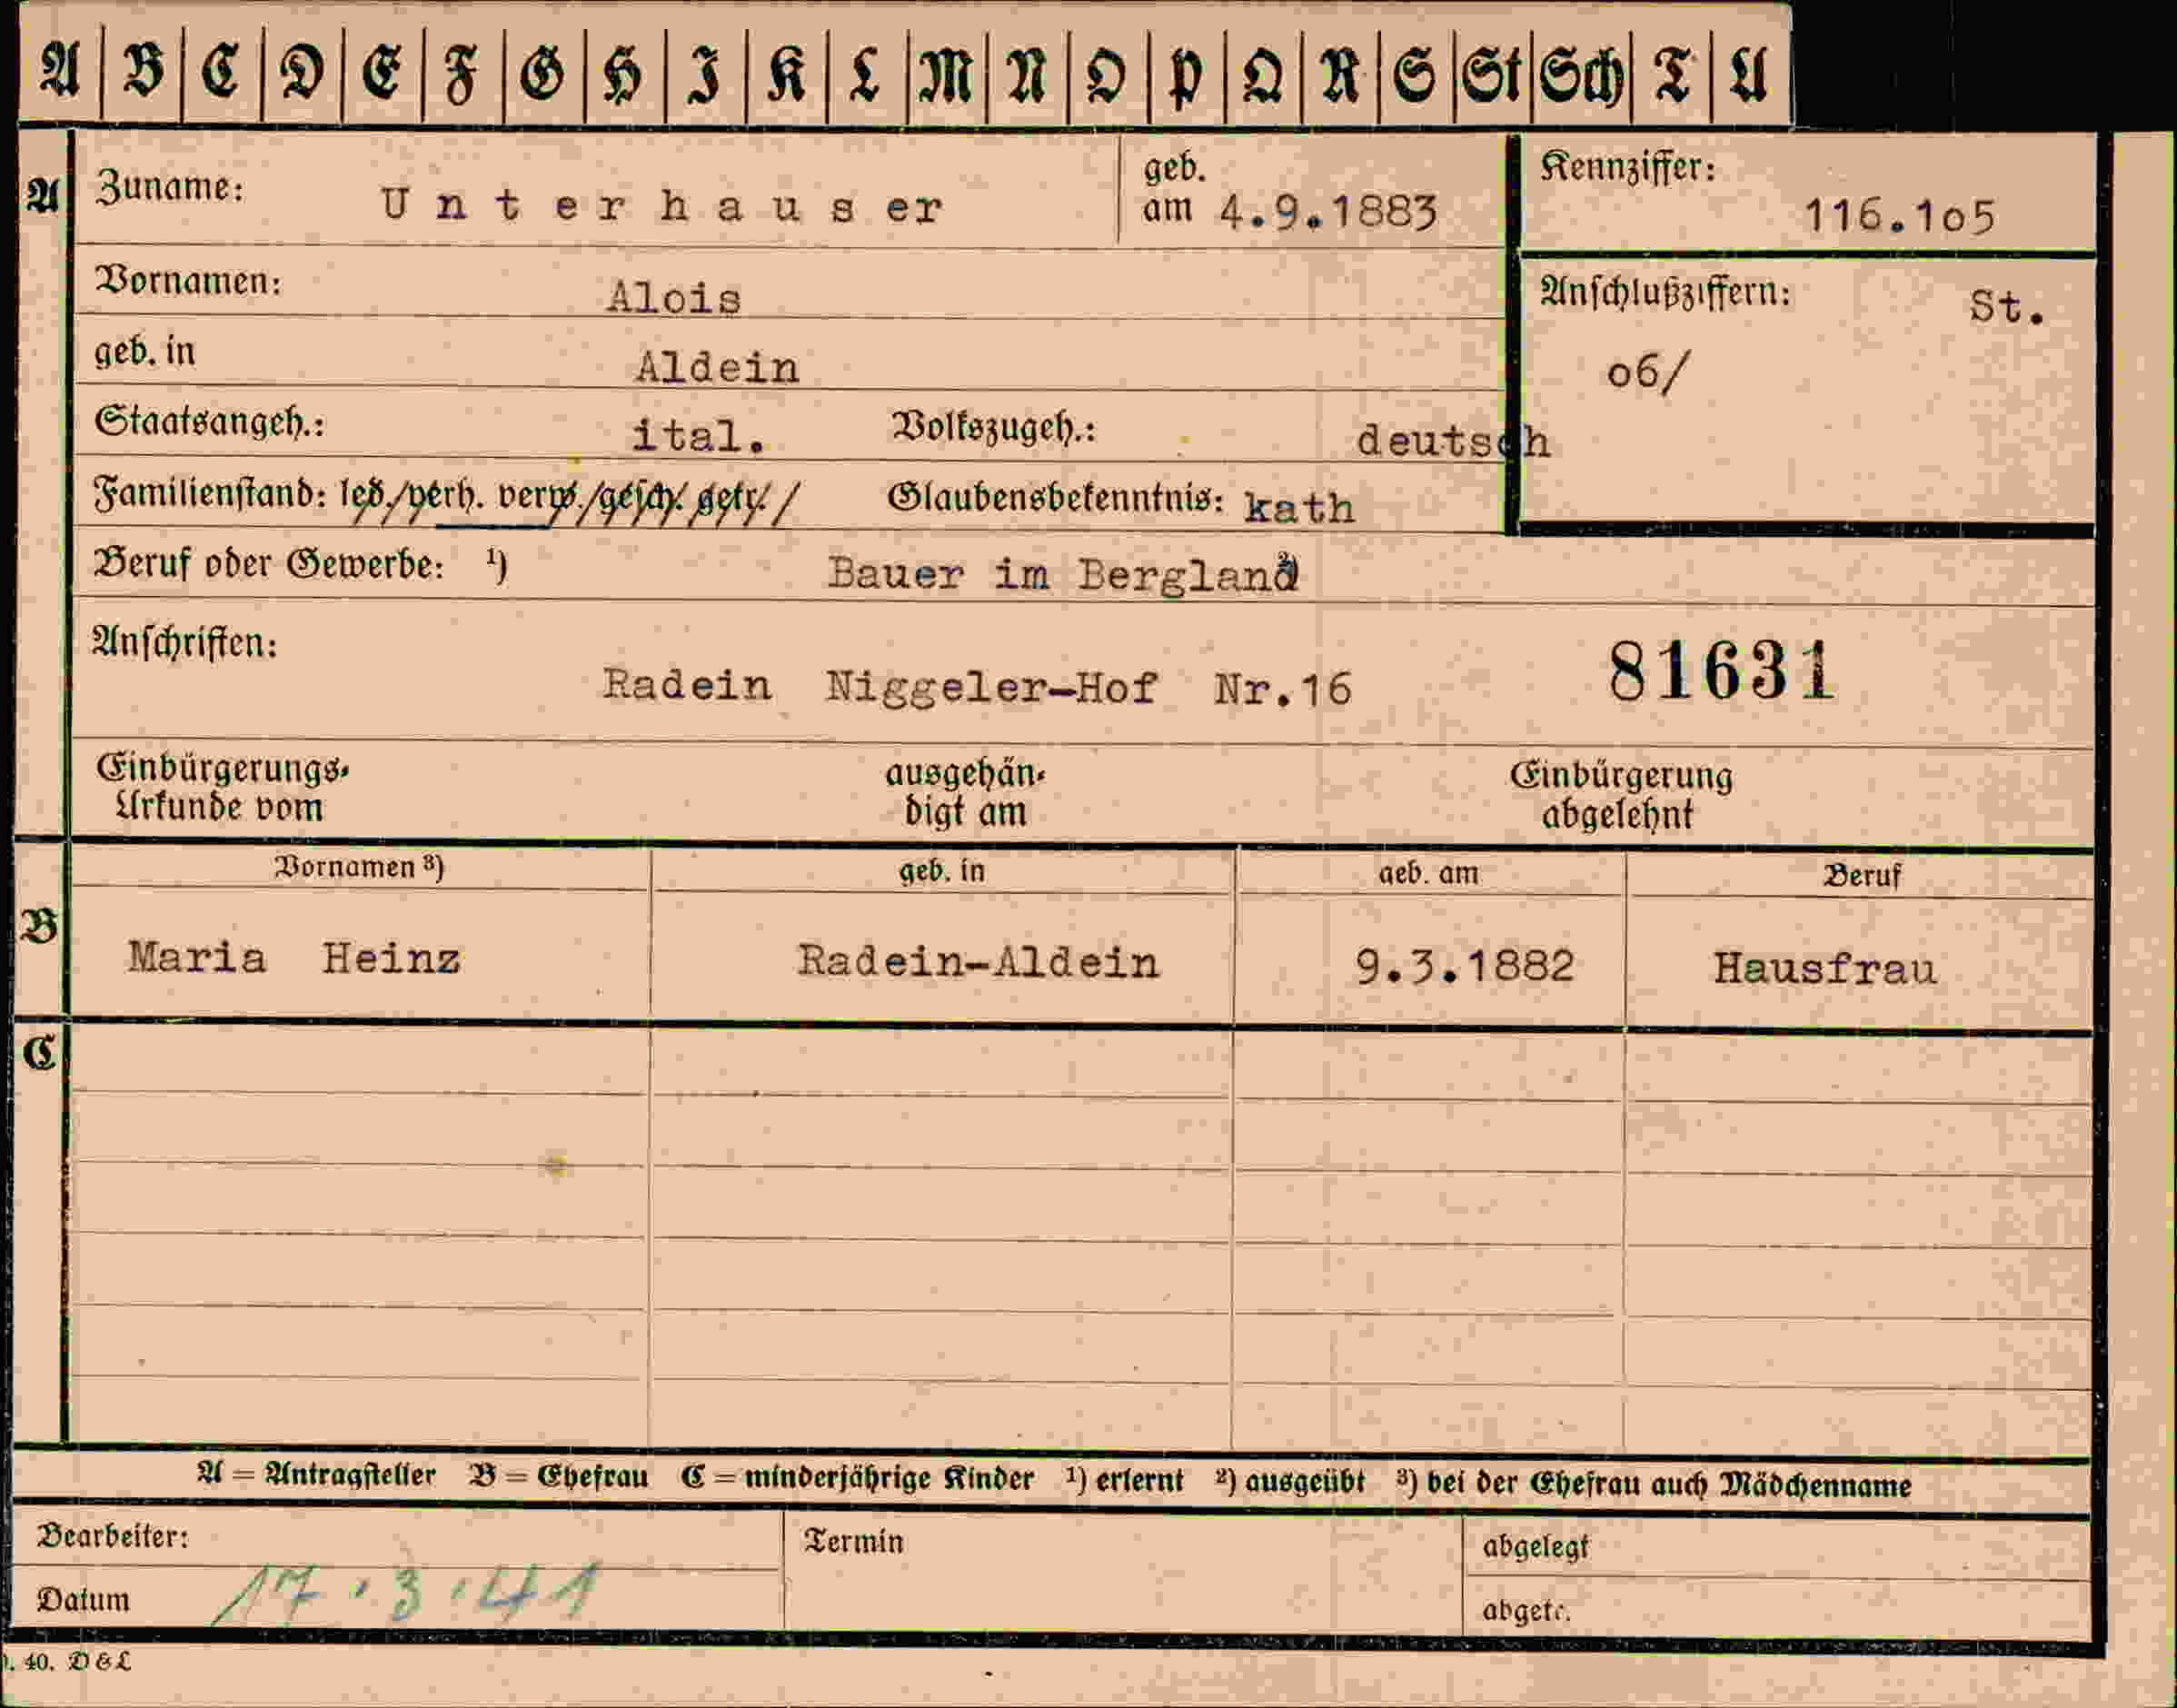 A B C D E F G H I K L M N O P Q R S St Sch T U
A Zuname: Unterhauser geb. am 4.9.1883 Kennziffer: 116.1o5
Vornamen: Alois Anschlußziffern: St.
geb. in Aldein o6/
Staatsangeh.: ital. Volkszugeh.: deutsch
Familienstand: led./verh. verw./gesch. getr./ Glaubensbekenntnis: kath
Beruf oder Gewerbe: ¹) Bauer im Bergland ²)
Anschriften: Radein Niggeler-Hof Nr.16 81631
Einbürgerungs- ausgehän- Einbürgerung
Urkunde vom digt am abgelehnt
Vornamen ³) geb. in geb. am Beruf
B Maria Heinz Radein-Aldein 9.3.1882 Hausfrau
C
A = Antragsteller B = Ehefrau C = minderjährige Kinder ¹) erlernt ²) ausgeübt ³) bei der Ehefrau auch Mädchenname
Bearbeiter: Termin abgelegt
Datum 17.3.41 abgetr.
. 40. D & L